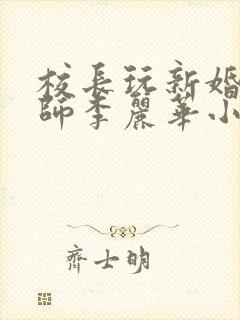 校長玩新婚
師李麗華小
齊士明